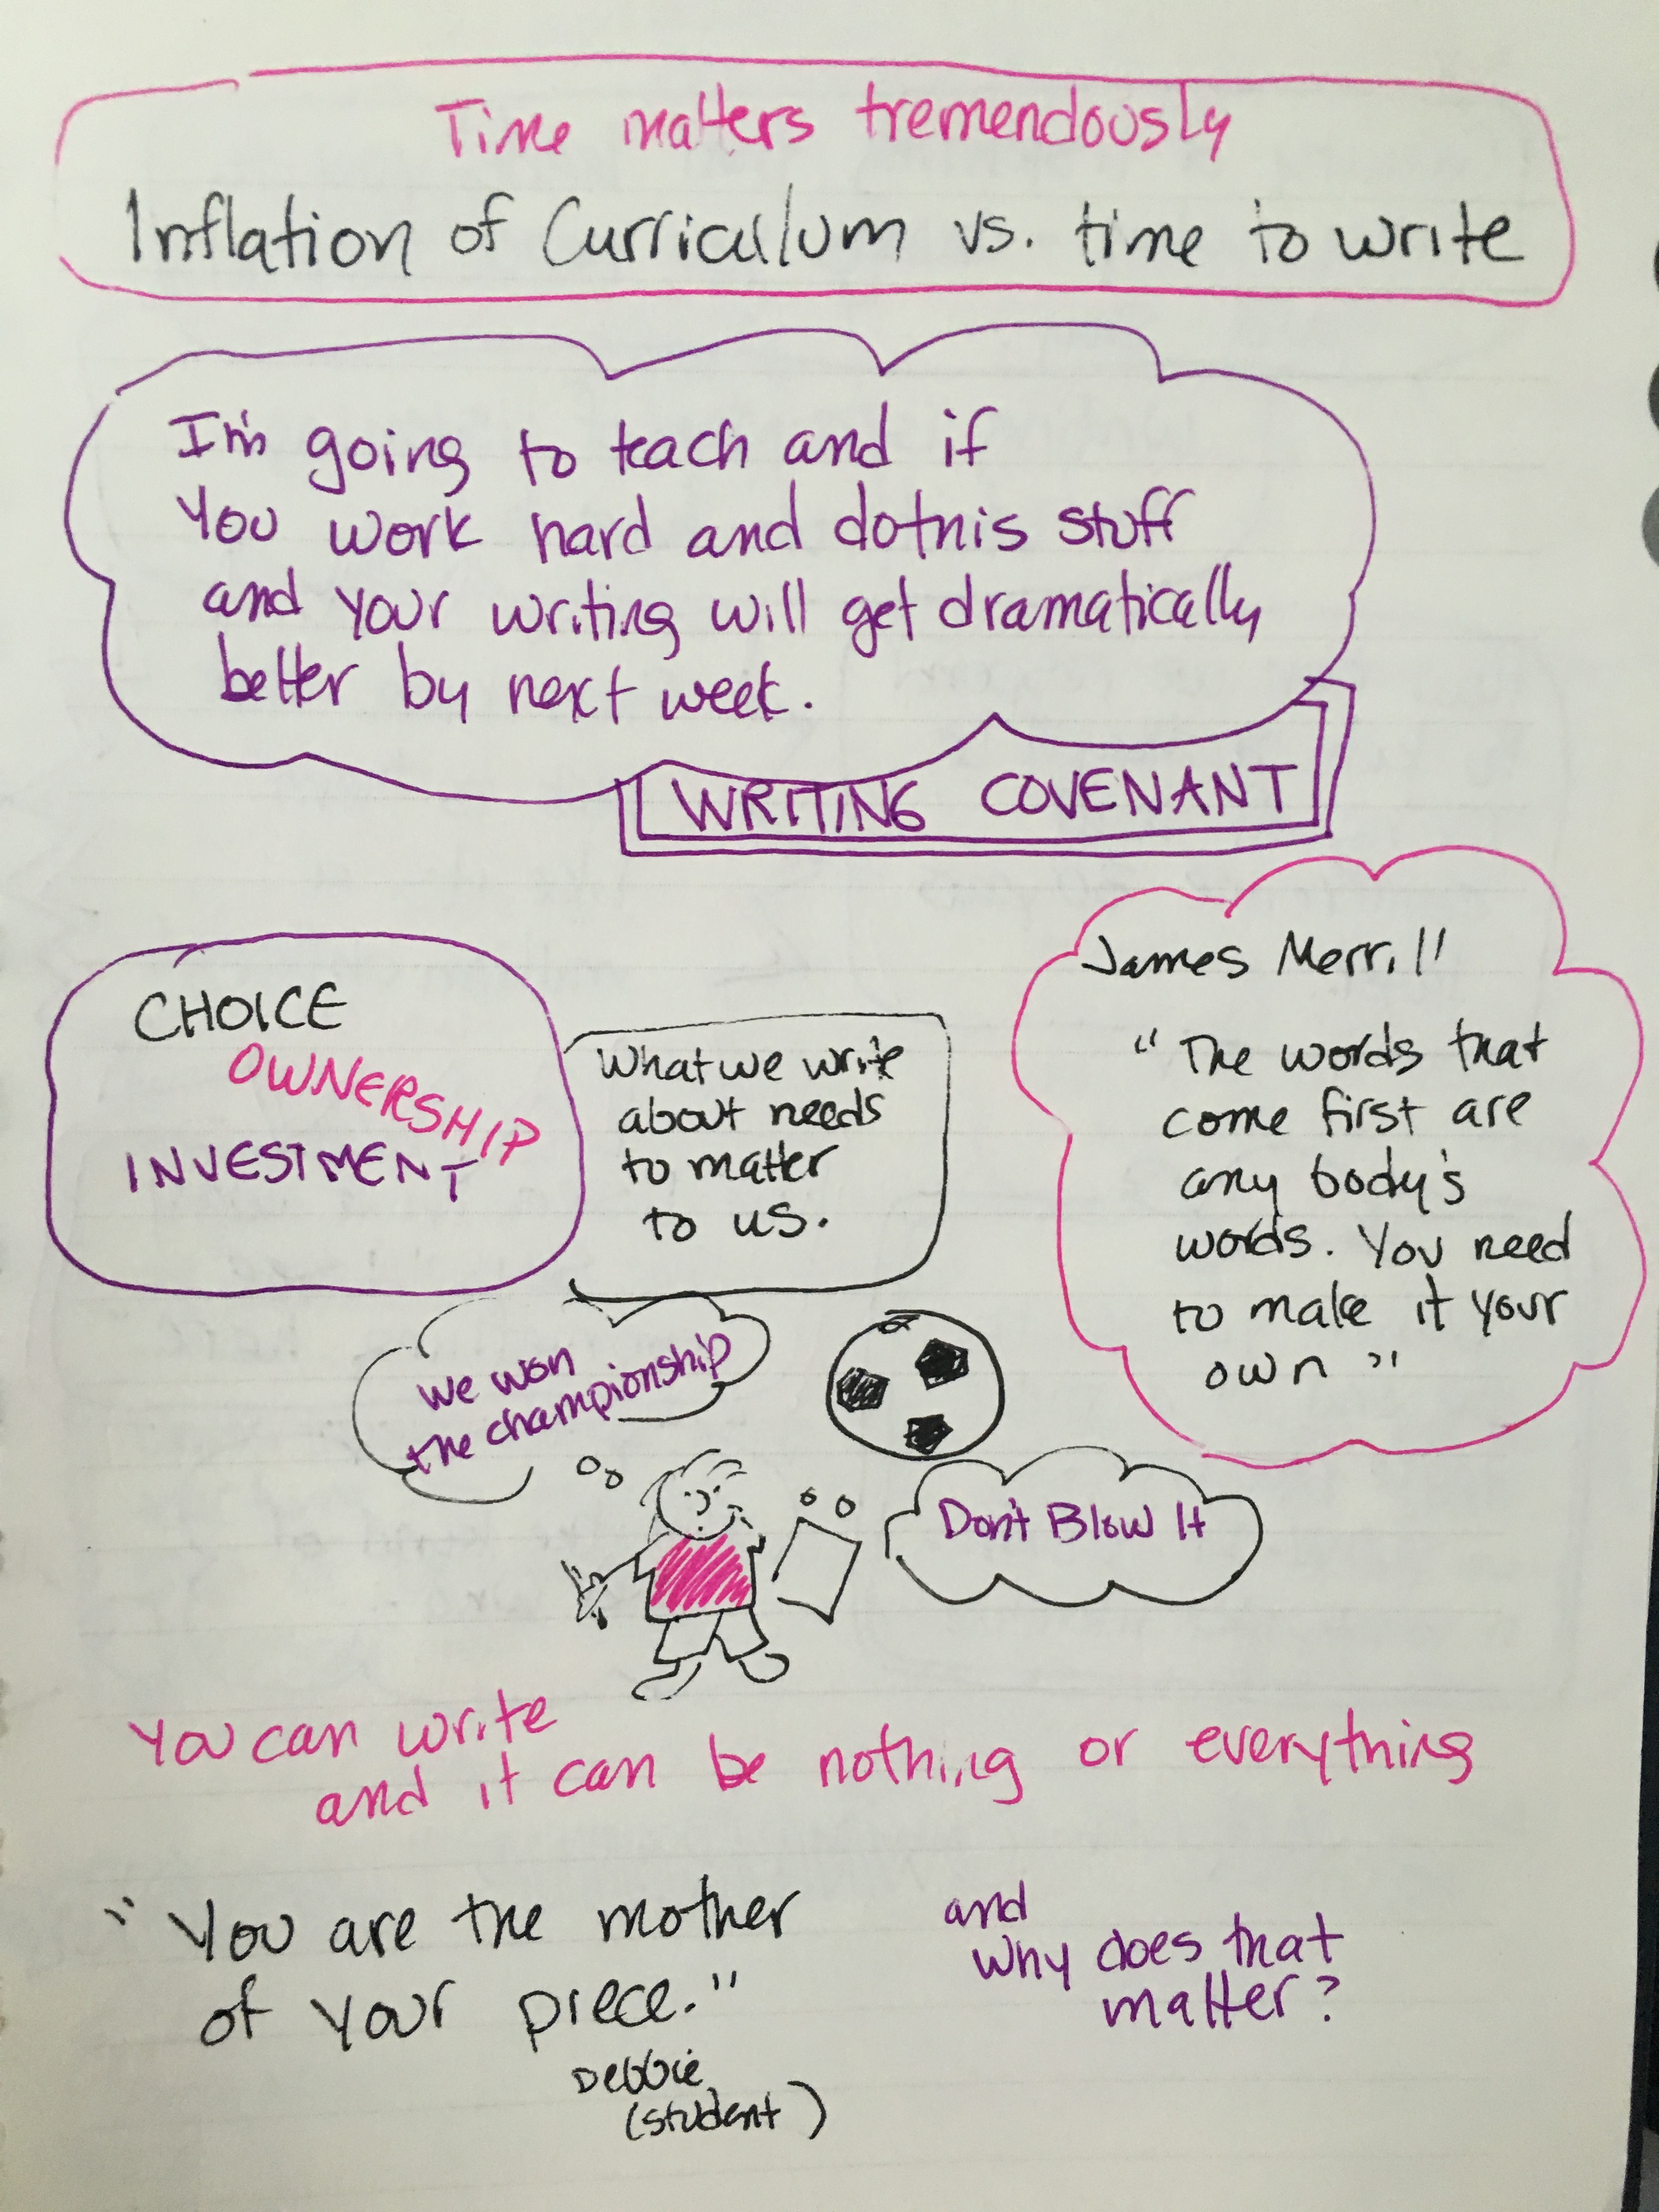 Time matters tremendously
Inflation of Curriculum vs. time to write
I'm going to teach and if
you work hard and do this stuff
and your writing will get dramatically
better by next week.
WRITING COVENANT
CHOICE
OWNERSHIP
INVESTMENT
What we write
about needs
to matter
to us.
James Merrill
"The words that
come first are
any body's
words. You need
to make it your
own"
We won
the championship
Don't Blow It
You can write
and it can be nothing or everything
"You are the mother
of your piece."
Debbie
(student)
and
why does that
matter?